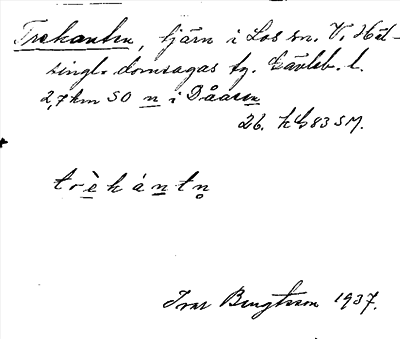 Trekanten, tjärn i Los sn. V. Häl-
singl. domsagas tg. Gävleb. l.
2,7 km SO n i Dåasen
26. kb 83 SM.
trèkántn̥
Ivar Bengtsson 1937.